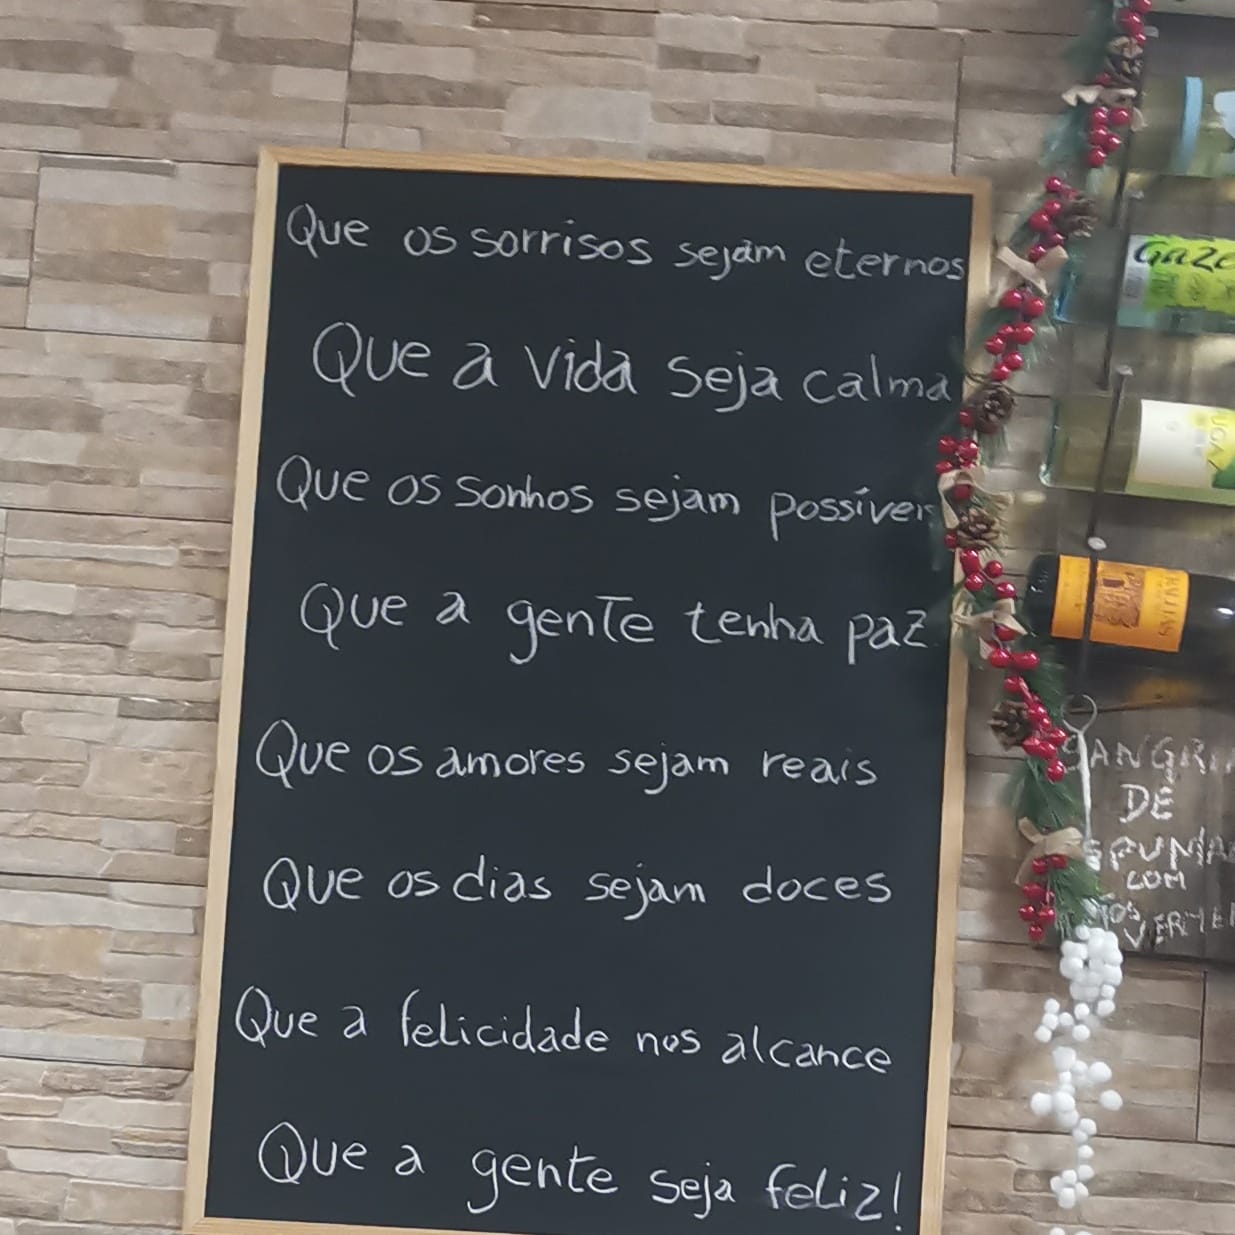 Que os sorrisos sejam eternos
Que a vida seja calma
Que os sonhos sejam possíveis
Que a gente tenha paz
Que os amores sejam reais
Que os dias sejam doces
Que a felicidade nos alcance
Que a gente seja feliz!
DE
COM